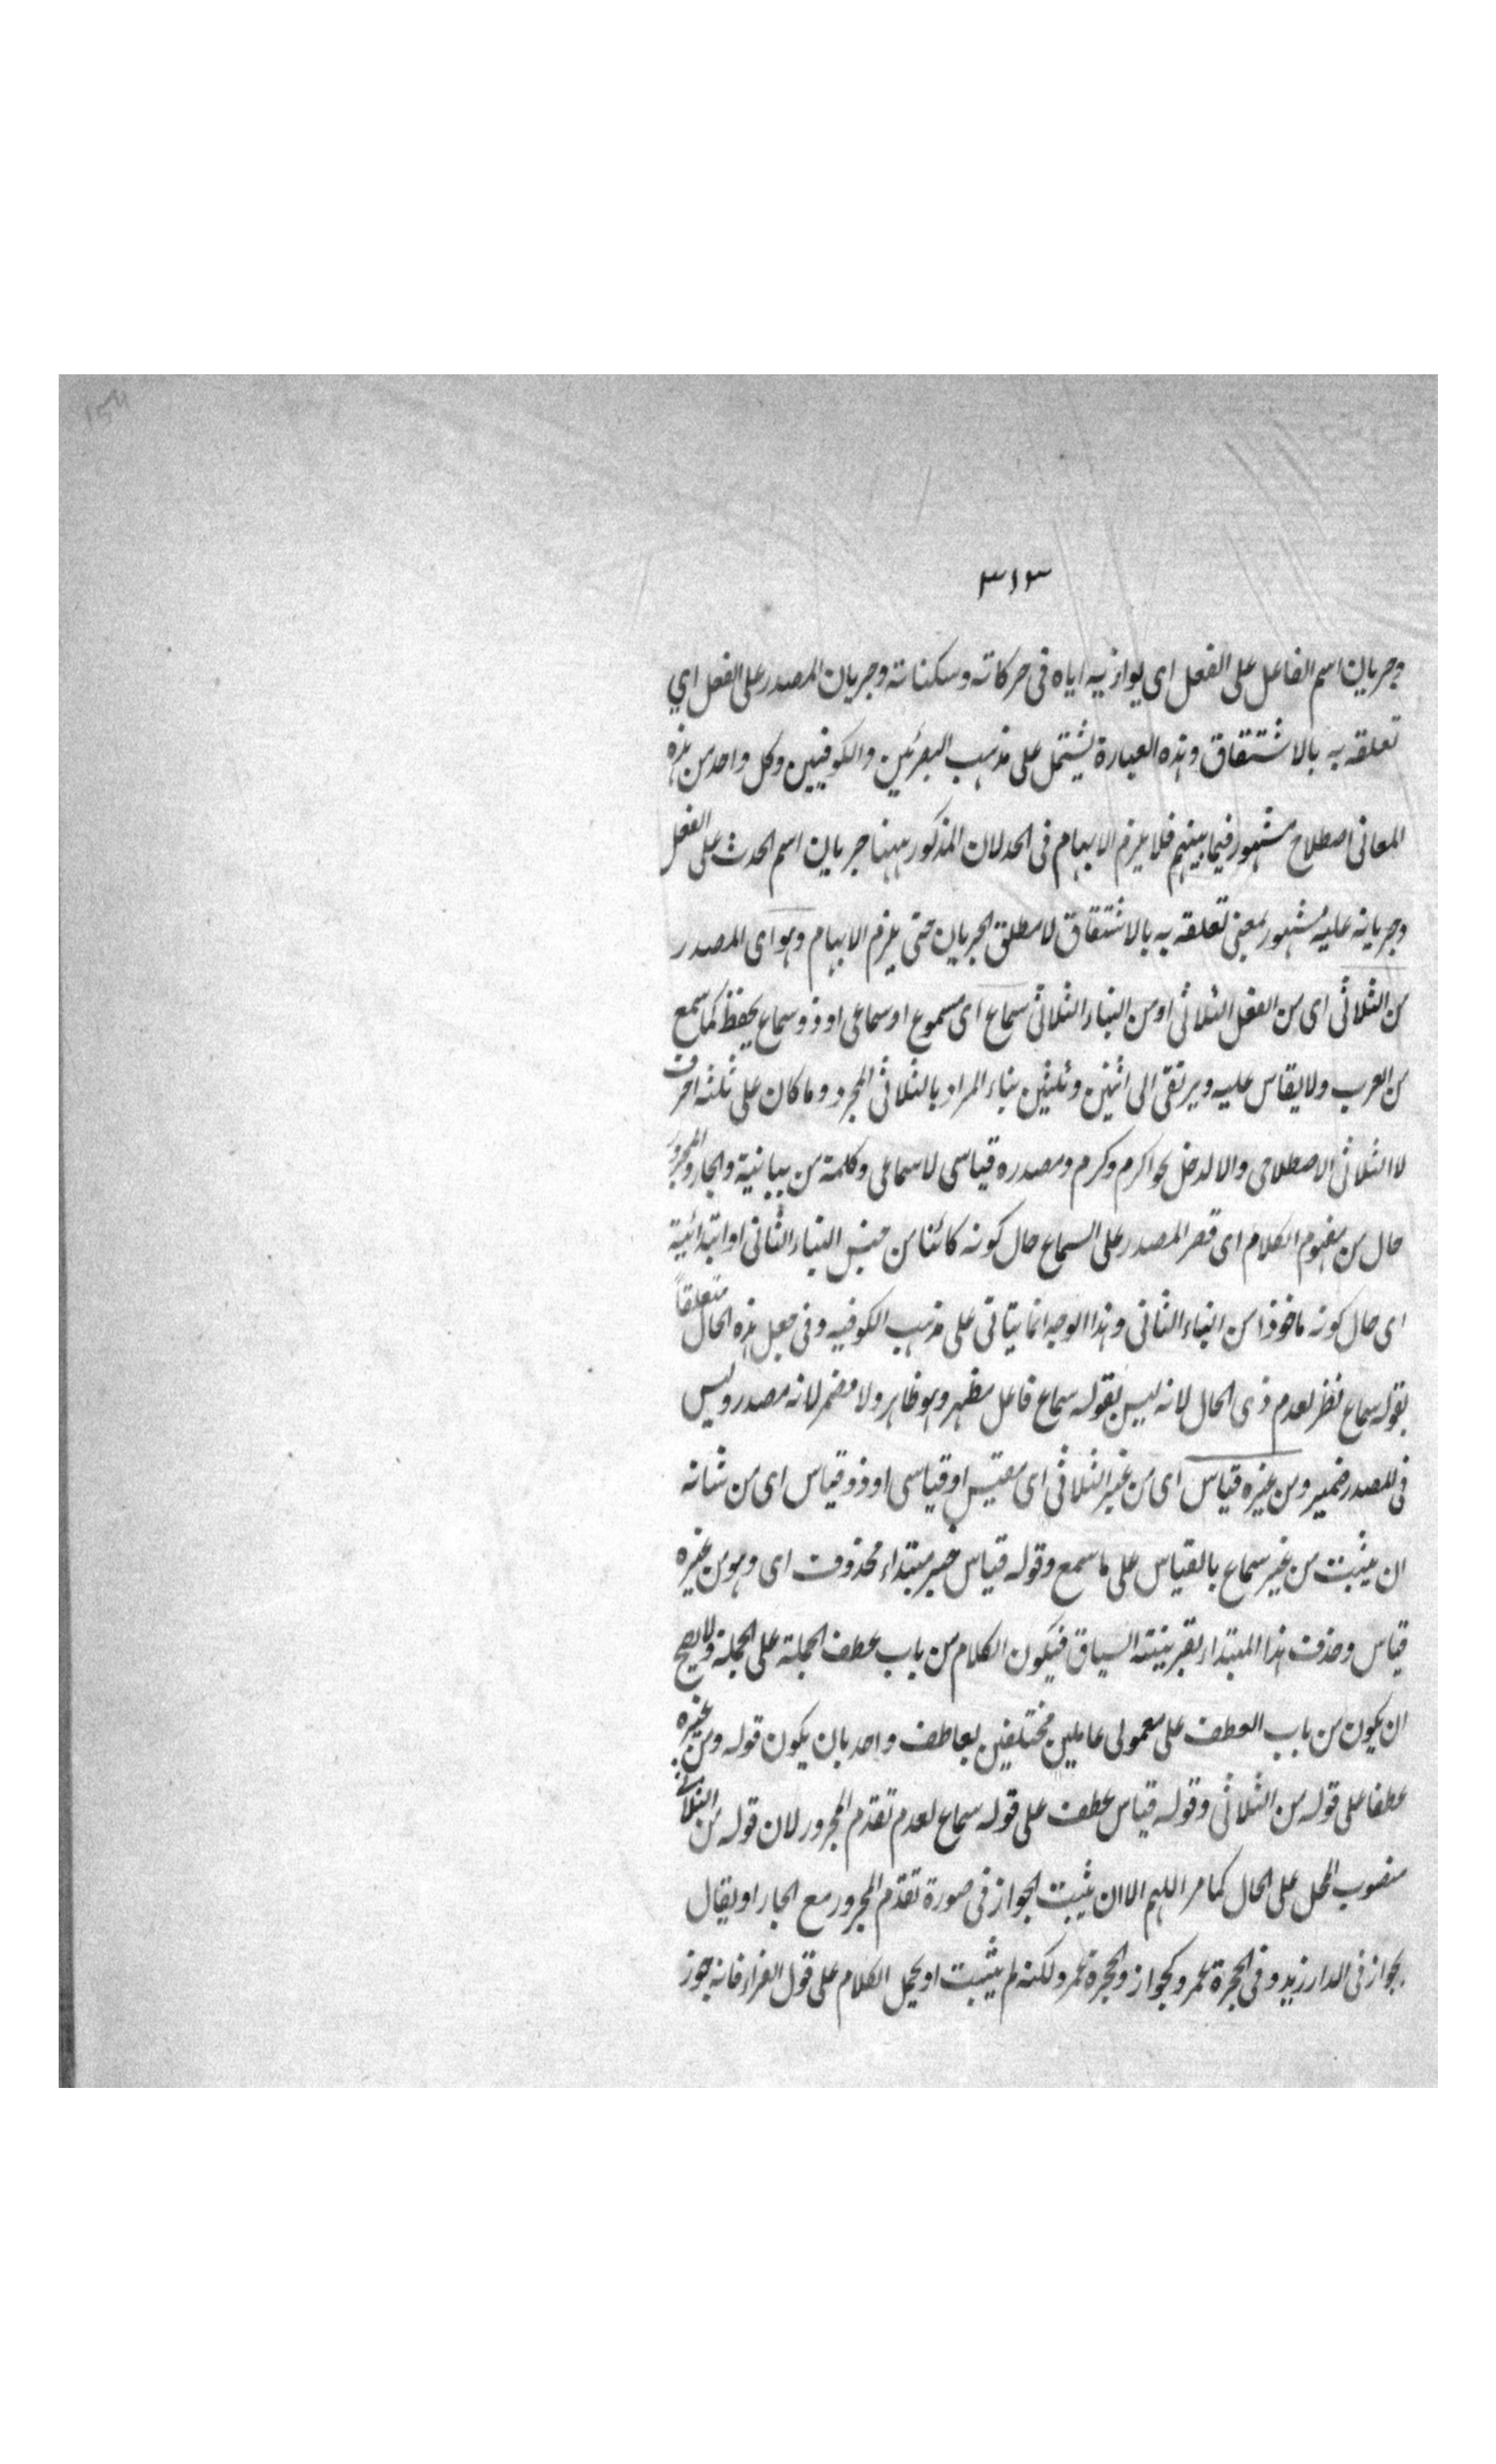 ٣١٣
وجريان اسم الفاعل على الفعل اى يوازنيه اياه فى حركاته وسكناته وجريان المصدر على الفعل اي
تعلقه به بالاشتقاق وهذه العبارة يشتمل على مذهب البصريين والكوفيين وكل واحد من هذه
المعانى اصطلاح مشهور فيما بينهم فلا يلزم الابهام فى الحد لان المذكور ههنا جريان اسم الحدث على الفعل
وجريانه عليه مشهور بمعنى تعلقه به بالاشتقاق لا مطلق الجريان حتى يلزم الابهام وهو اى المصدر
من الثلاثى اى من الفعل الثلاثى او من البناء الثلاثى سماع اى مسموع او سماعى او ذو سماع يحفظ كما سمع
من العرب ولا يقاس عليه ويرتقى الى اثنين وثلثين بناء المراد بالثلاثى المجرد وما كان على ثلثه احرف
لا الثلاثى الاصطلاحى والا لدخل نحو اكرم وكرم ومصدره قياسى لا سماعى وكلمة من بيانية والجار والمجرور
حال من مفهوم الكلام اى قصر المصدر على السماع حال كونه كائنا من جنس البناء الثانى او ابتدائية
اى حال كونه ماخوذا من البناء الثانى وهذا الوجه انما يتاتى على مذهب الكوفيه وفى جعل هذه الحال متعلقاً
بقوله سماع نظر لعدم ذى الحال لانه ليس بقوله سماع فاعل مظهر وهو ظاهر ولا مضمر لانه مصدر وليس
فى المصدر ضمير ومن غيره قياس اى من غير الثلاثى اى مقيس او قياسى او ذو قياس اى من شانه
ان يثبت من غير سماع بالقياس على ما سمع وقوله قياس خبر مبتداء محذوف اى وهو من غيره
قياس وحذف هذا المبتداء بقرينته السياق فيكون الكلام من باب عطف الجملة على الجملة ولا يصح
ان يكون من باب العطف على معمولى عاملين مختلفين بعاطف واحد بان يكون قوله ومن غيره
عطفا على قوله من الثلاثى وقوله قياس عطف على قوله سماع لعدم تقدم المجرور لان قوله من الثلاثى
منصوب المحل على الحال كما مر اللهم الا ان يثبت الجواز فى صورة تقدم المجرور مع الجار او يقال
بجواز فى الدار زيد وفى الحجرة عمرو كجواز والحجرة عمرو لكنه لم يثبت او يحمل الكلام على قول الفراء فانه جوز